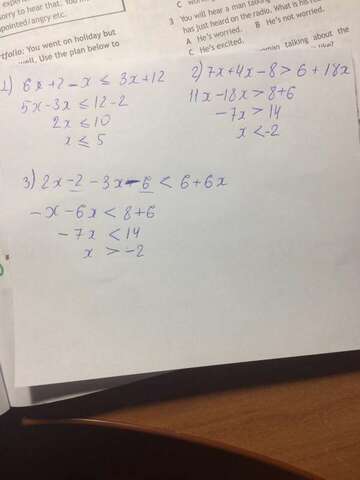 sorry to hear that. You m
pointed/angry etc.
rtfolio: You went on holiday but
well. Use the plan below to
3 You will hear a man talking
has just heard on the radio. What is his
A He's worried. B He's not worried.
C He's excited.
talking about the
1) 6x+2-x ≤ 3x+12
5x-3x ≤ 12-2
2x ≤ 10
x ≤ 5
2) 7x+4x-8 > 6+18x
11x-18x > 8+6
-7x > 14
x < -2
3) 2x-2-3x-6 < 6+6x
-x-6x < 8+6
-7x < 14
x > -2